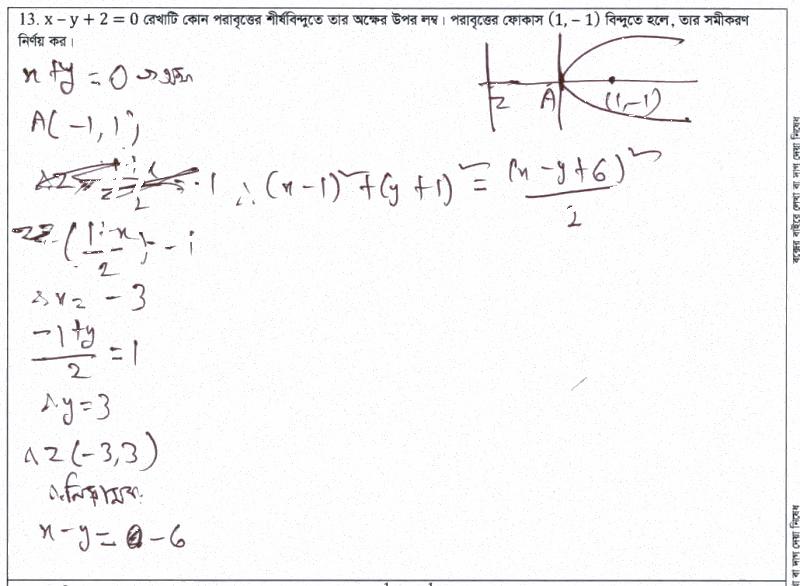 13. x − y + 2 = 0 রেখাটি কোন পরাবৃত্তের শীর্ষবিন্দুতে তার অক্ষের উপর লম্ব। পরাবৃত্তের ফোকাস (1, − 1) বিন্দুতে হলে, তার সমীকরণ
নির্ণয় কর।
x + y = 0 → অক্ষ
A(-1, 1)
Z A (1, -1)
∴ (x - 1)² + (y + 1)² = (x - y + 6)² / 2
(1 + x / 2) = -1
∴ x = -3
-1 + y / 2 = 1
∴ y = 3
∴ Z (-3, 3)
∴ নিয়ামক
x - y = -6
বক্সের বাইরে লেখা বা দাগ দেয়া নিষেধ
বা দাগ দেয়া নিষেধ